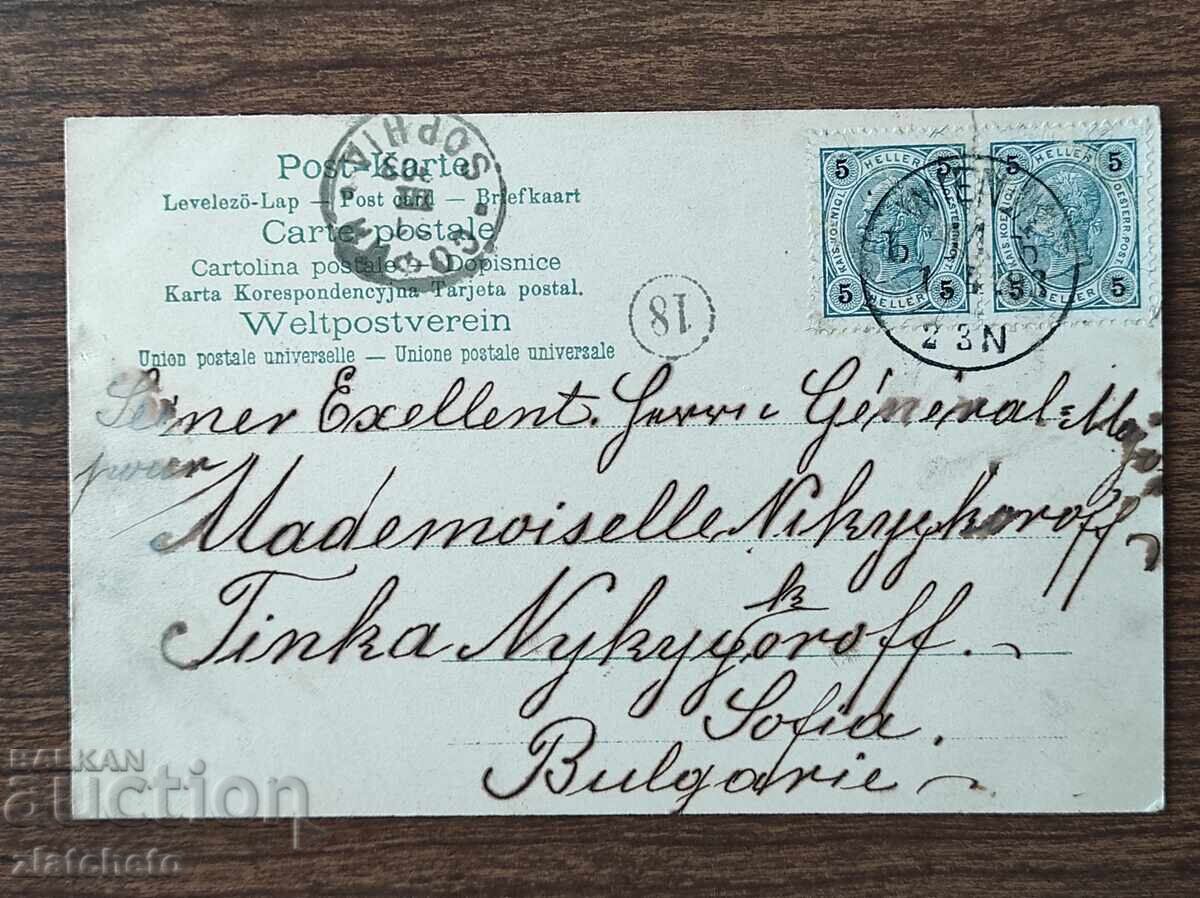 Post-Karte
Levelező-Lap — Post card — Briefkaart
Carte postale
Cartolina postale — Dopisnice
Karta Korespondencyjna Tarjeta postal.
Weltpostverein
Union postale universelle — Unione postale universale
СОФИЯ
SOPHIA
18
5 HELLER 5
KAIS. KOENIGL. OESTERR. POST.
5 HELLER 5
5 HELLER 5
KAIS. KOENIGL. OESTERR. POST.
5 5
WIEN
2 3N
Seiner Exellent. Herrn Général-Majo
Mademoiselle Nikyykoroff
Tinka Nykyyoroff.
k
Sofia.
Bulgarie
BALKAN
auction
zlatcheto